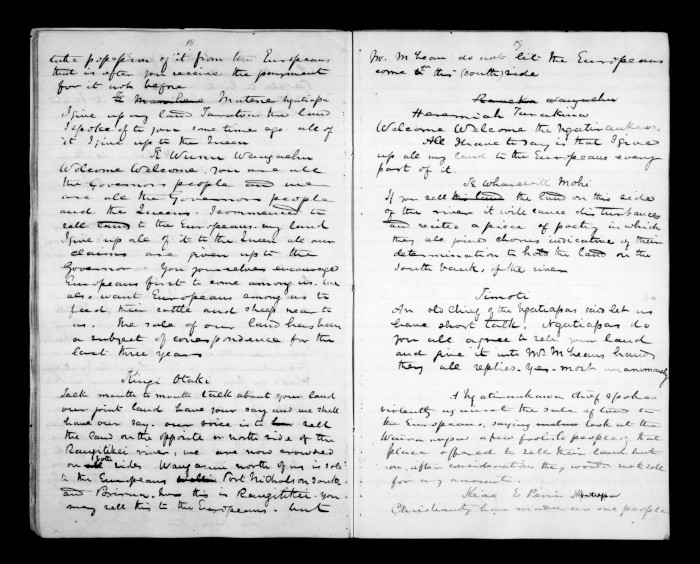 take possession of it from the Europeans
that is after you receive the payment
for it not before
Matene Ngatiapa
I give up my land Taratou the land
I spoke of to you some time ago all of
it I give up to the Queen
E Wunu Wangaehu
Welcome Welcome. You are all
the Governors people and we
are all the Governors people
and the Queens. I commenced to
sell land to the Europeans. my land
I give up all of it to the Queen all our
claims are given up to the
Governor. You yourselves encourage
Europeans first to come among us. We
also want Europeans among us to
feed their cattle and sheep near to
us. The sale of our land has been
a subject of correspondence for the
last three years.
Kingi Otaki
Each mouth to mouth talk about your land
our joint land have your say and we shall
have our say. our voice is to sell
the land on the opposite or north side of the
Rangitikei river, we are now crowded
on both sides Wanganui north of us is sold
to the Europeans Port Nicholson South
and Porirua. this is Rangitikei. You
may sell this to the Europeans. but
7
Mr. McLean do not let the Europeans
come on this (south) side
Rameka Wangaehu
Heremiah Turakina
Welcome Welcome the Ngatiraukawa.
All I have to say is that I give
up all my land to the Europeans every
part of it.
Te Wharewiti Mohi
If you sell this land the land on this side
of the river it will cause disturbances
and recited a piece of poetry in which
they all joined chorus indicative of their
determination to hold the land on the
South bank of the river
Timoti
An old Chief of the Ngatiapas said let us
have short talk. Ngatiapas do
you all agree to sell your land
and give it into Mr. McLeans hand
they all replies. Yes. most unanimously
A Ngatiraukawa chief spoke
violently against the sale of land to
the Europeans, saying look at the
a few foolish people, that
place offered to sell their land but
on, after consideration they would not sell
for any amount.
Ngatiapa
Christianity has made us one people